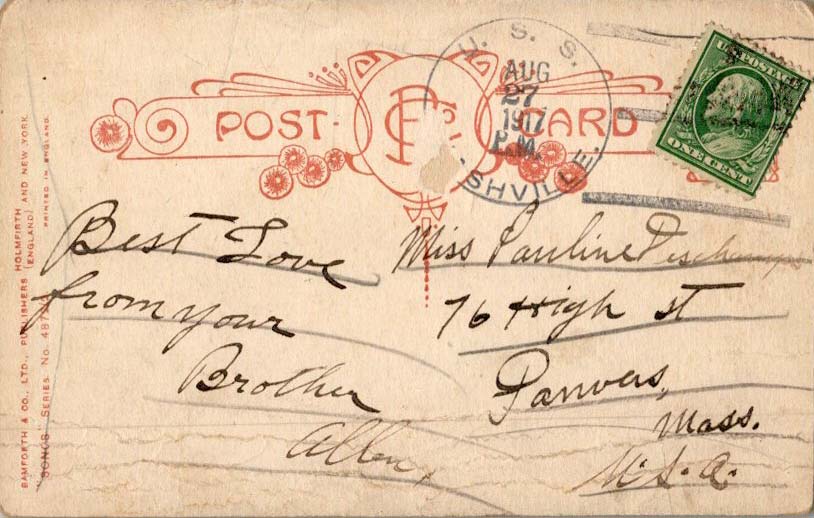 POST CARD
U. S. S.
AUG
27
1917
P.M.
SHVILLE.
U.S. POSTAGE
ONE CENT
BAMFORTH & CO., LTD., PUBLISHERS HOLMFIRTH (ENGLAND) AND NEW YORK.
"SONGS" SERIES. No.
PRINTED IN ENGLAND.
Best Love
from your
Brother
Allen,
Miss Pauline
76 High st
Danvers,
Mass.
U.S.A.